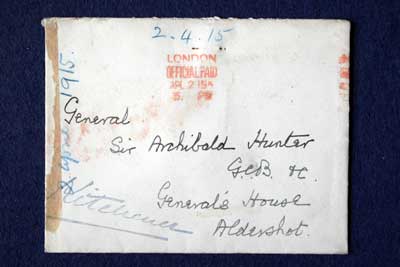 2.4.15
LONDON
OFFICIAL PAID
APL 2 15
5. PM
General
Sir Archibald Hunter
G.C.B. &c.
General's House
Aldershot.
Kitchener
April 1915.